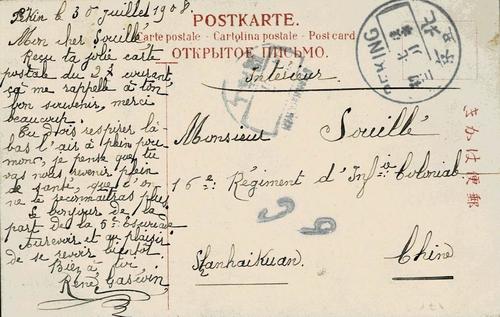 Pékin le 30 Juillet 1908.
Mon cher Souillé
Reçu ta jolie carte
postale du 27 courant
ça me rappelle à ton
bon souvenir, merci
beaucoup.
Tu dois respirer là-
bas l'air à plein pou
mon, je pense que tu
vas nous revenir plein
de santé, que l'on
ne te reconnaîtras plus
Le bonjour de la
part de la 5e Escouade
Au revoir et au plaisir
de se revoir bientôt.
Bien à toi
René
POSTKARTE.
Carte postale - Cartolina postale - Post card
ОТКРЫТОЕ ПИСЬМО.
Intérieur
PEKING
北京
Monsieur Souillé
16e Régiment d'Infie Coloniale
Shanhaïkuan. Chine
きかは便郵